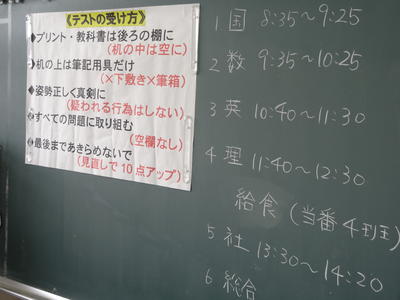 《テストの受け方》
◆プリント・教科書は後ろの棚に
(机の中は空に)
◆机の上は筆記用具だけ
(×下敷き×筆箱)
◆姿勢正しく真剣に
(疑われる行為はしない)
◆すべての問題に取り組む
(空欄なし)
◆最後まであきらめないで
(見直しで10点アップ)
1 国 8:35～9:25
2 数 9:35～10:25
3 英 10:40～11:30
4 理 11:40～12:30
給食(当番4班)
5 社 13:30～14:20
6 総合